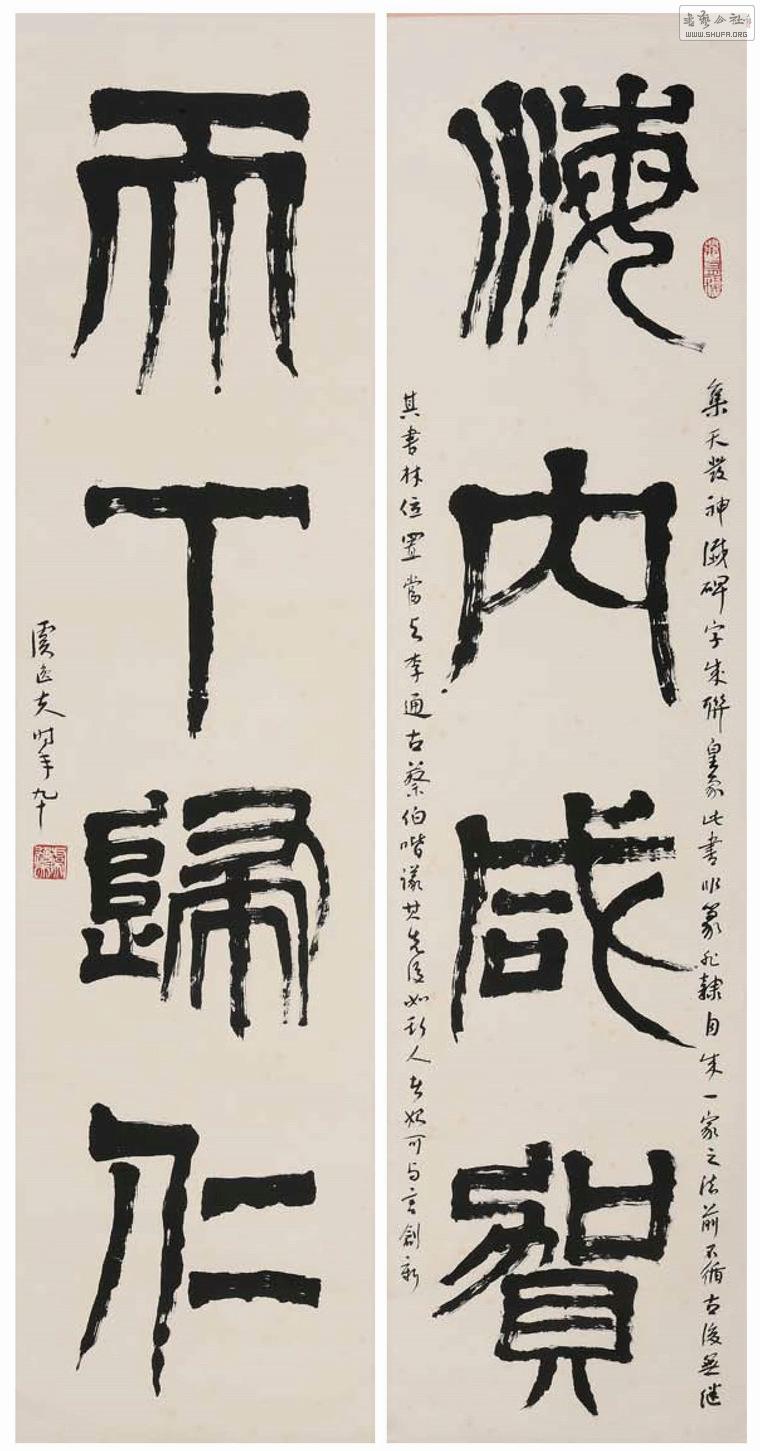 書藝公社
WWW.SHUFA.ORG
海内咸賀
集天發神讖碑字成聯皇象此書非篆非隸自成一家之法前不循古後無繼
其書林位置當与李通古蔡伯喈議其先後如斯人者始可与言創新
天下歸仁
虞逸夫时年九十